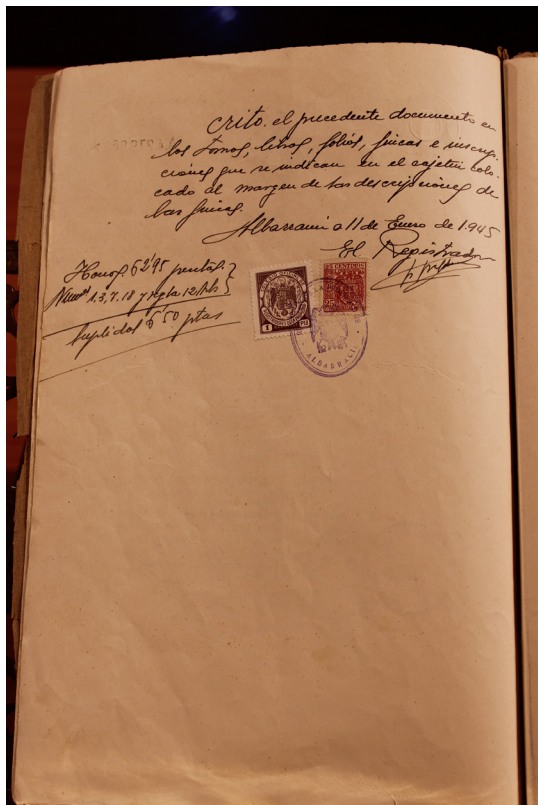 crito. el precedente documento en
los tomos, libros, folios, fincas e inscrip-
ciones que se indican en el cajetin colo-
cado al margen de las descripciones de
las fincas.
Albarracin a 11 de Enero de 1.945
El Registrador
Honos 62'95 pesetas
Numos 1, 3, 7, 18 y regla 12
suplidos 5'50 ptas
1 PTA
CENTIMOS
ALBARRACIN